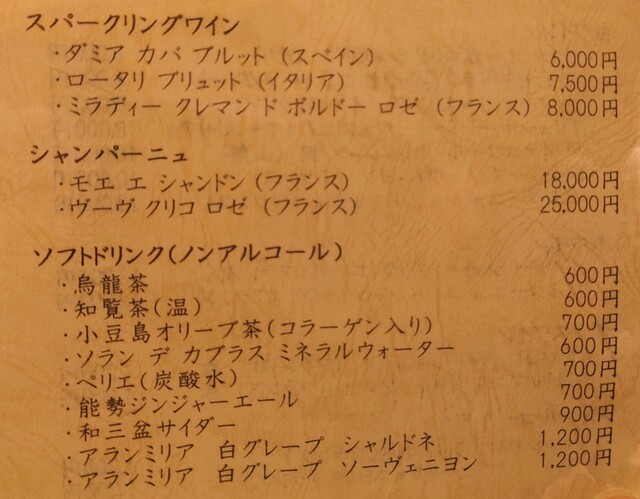 スパークリングワイン
・ダミア カバ ブルット (スペイン) 6,000円
・ロータリ ブリュット (イタリア) 7,500円
・ミラディー クレマン ド ボルドー ロゼ (フランス) 8,000円
シャンパーニュ
・モエ エ シャンドン (フランス) 18,000円
・ヴーヴ クリコ ロゼ (フランス) 25,000円
ソフトドリンク(ノンアルコール)
・烏龍茶 600円
・知覧茶(温) 600円
・小豆島オリーブ茶(コラーゲン入り) 700円
・ソラン デ カブラス ミネラルウォーター 600円
・ペリエ(炭酸水) 700円
・能勢ジンジャーエール 700円
・和三盆サイダー 900円
・アランミリア 白グレープ シャルドネ 1,200円
・アランミリア 白グレープ ソーヴェニヨン 1,200円